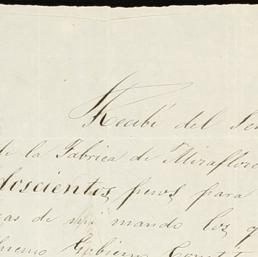 Recibí del Se
de la Fabrica de Miraflore
doscientos pesos para
as de mi mando los q
premo Gobierno Const